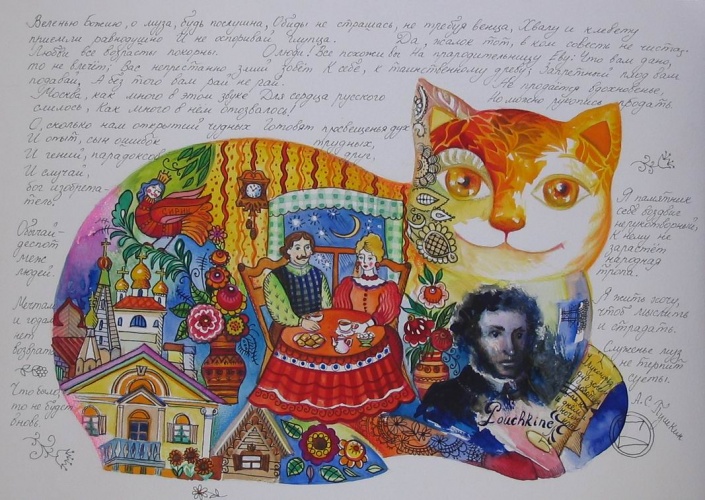 Веленью Божию, о муза, будь послушна, Обиды не страшась, не требуя венца, Хвалу и клевету
приемли равнодушно И не оспоривай глупца. Да, жалок тот, в ком совесть не чиста.
Любви все возрасты покорны. О люди! Все похожи вы На прародительницу Еву: Что вам дано,
то не влечёт; Вас непрестанно змий зовёт К себе, к таинственному древу; Запретный плод вам
подавай, А без того вам рай не рай. Не продается вдохновенье,
Москва, как много в этом звуке Для сердца русского Но можно рукопись продать.
слилось, Как много в нем отозвалось!
О, сколько нам открытий чудных Готовят просвещенья дух
И опыт, сын ошибок трудных,
И гений, парадоксов друг,
И случай,
бог изобрета-
тель.
Обычай-
деспот
меж
людей.
Мечтам
и годам
нет
возврата
Что было,
то не будет
вновь.
Я памятник
себе воздвиг
нерукотворный,
К нему не
зарастёт
народная
тропа.
Я жить хочу,
чтоб мыслить
и страдать.
Служенье муз
не терпит
суеты.
А.С. Пушкин
Pouchkine